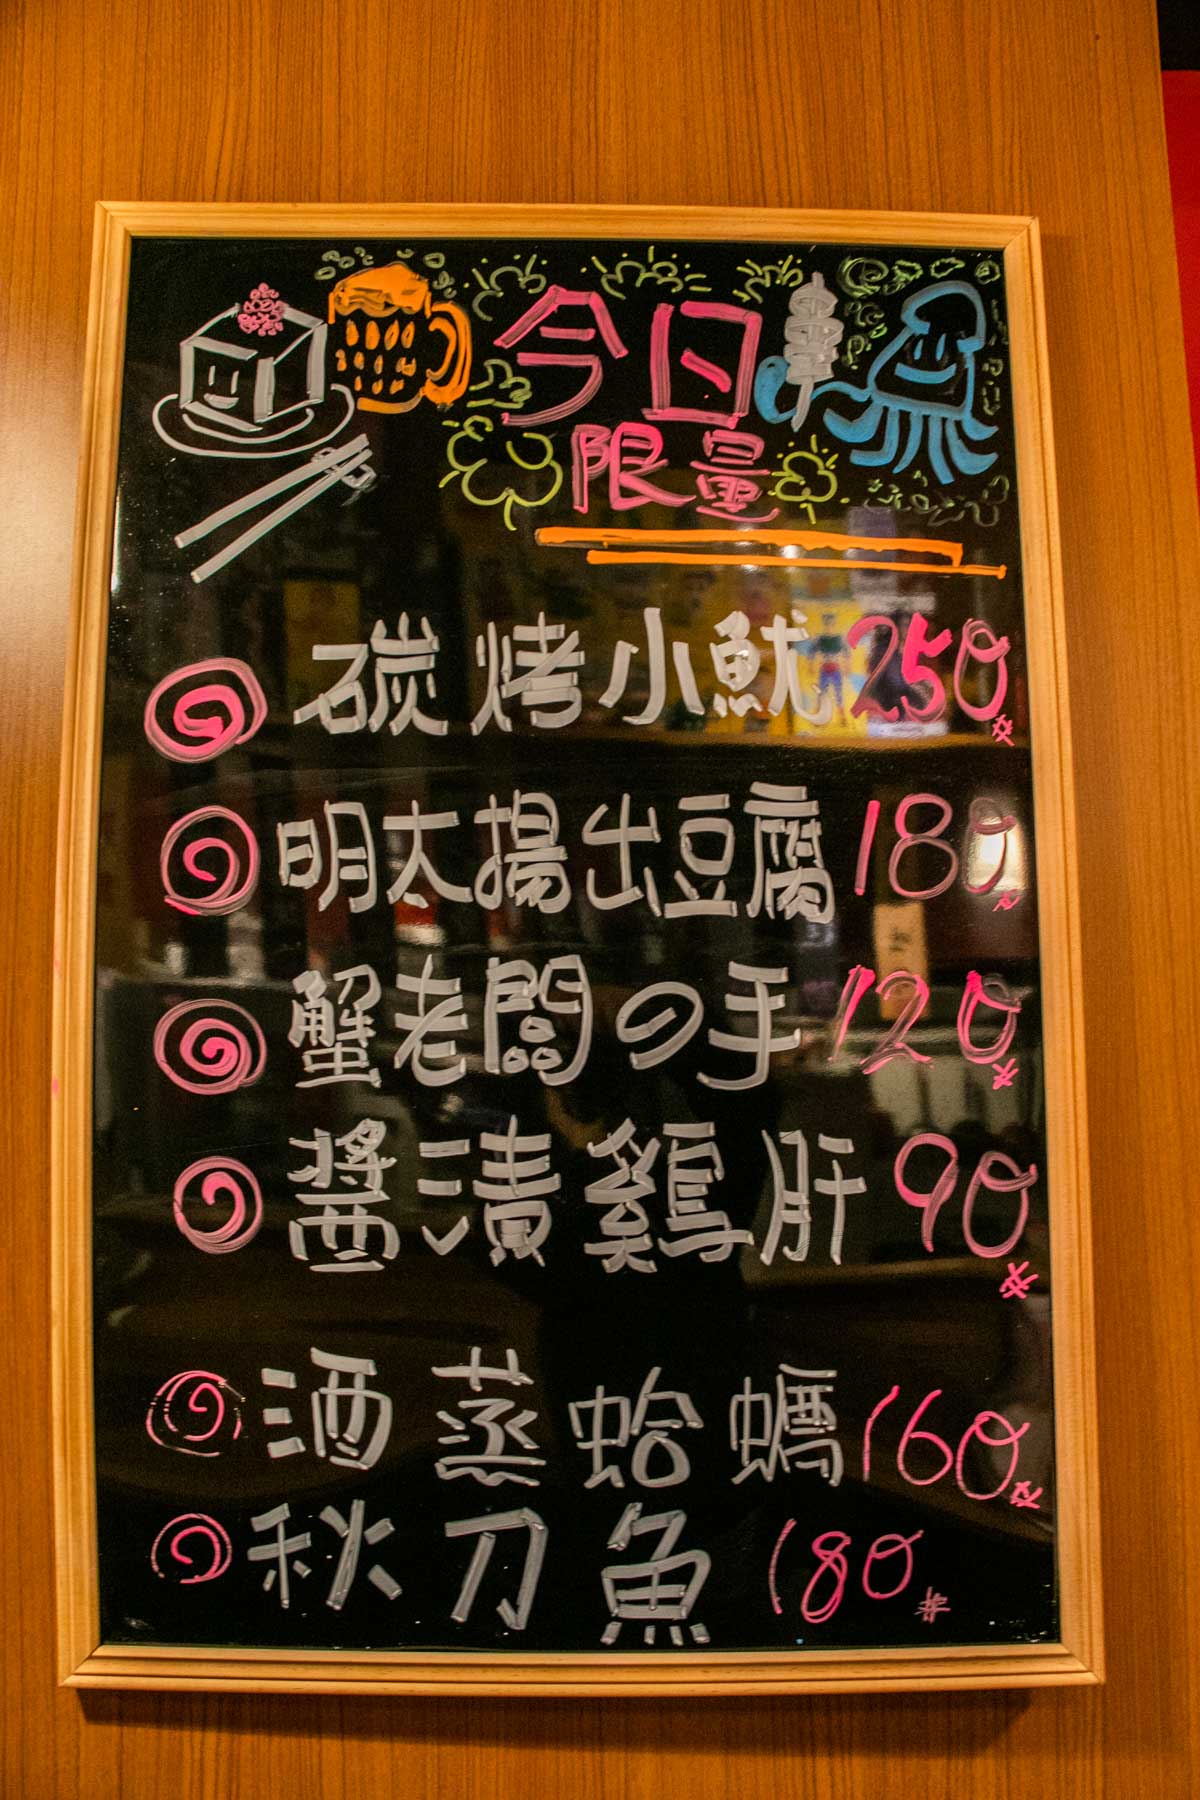 今日
限量
碳烤小魷 250
明太揚出豆腐 180
蟹老闆の手 120
醬漬雞肝 90
酒蒸蛤蠣 160
秋刀魚 180